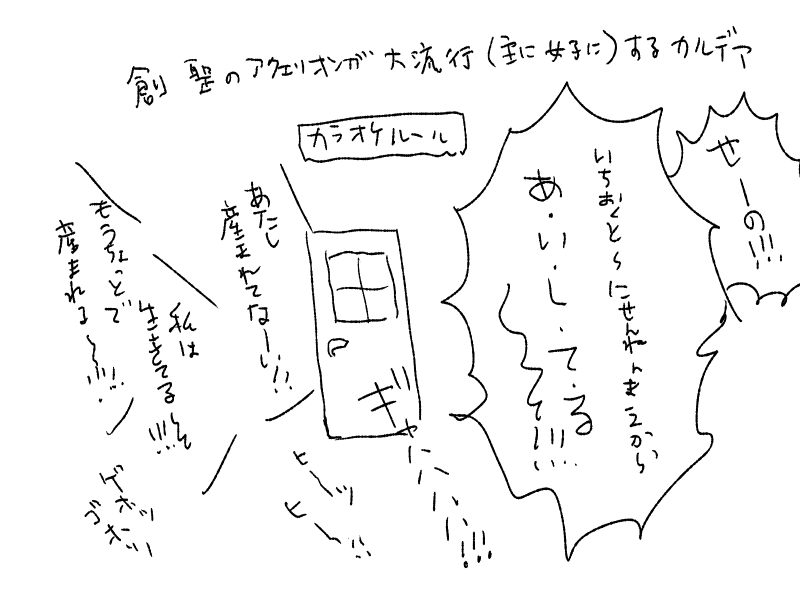 創聖のアクエリオンが大流行(主に女子に)するカルデア
カラオケルール
せーの!!!
いちおくとにせんねんまえから
あ・い・し・て・る
〜〜〜!!!
あたし
産まれてなーい!!
私は
生きてる!!!
もうちょっとで
産まれる〜!!!
ギャハハハハ!!!
ヒーッ
ヒー!!
ゲホッ
ゴホッ